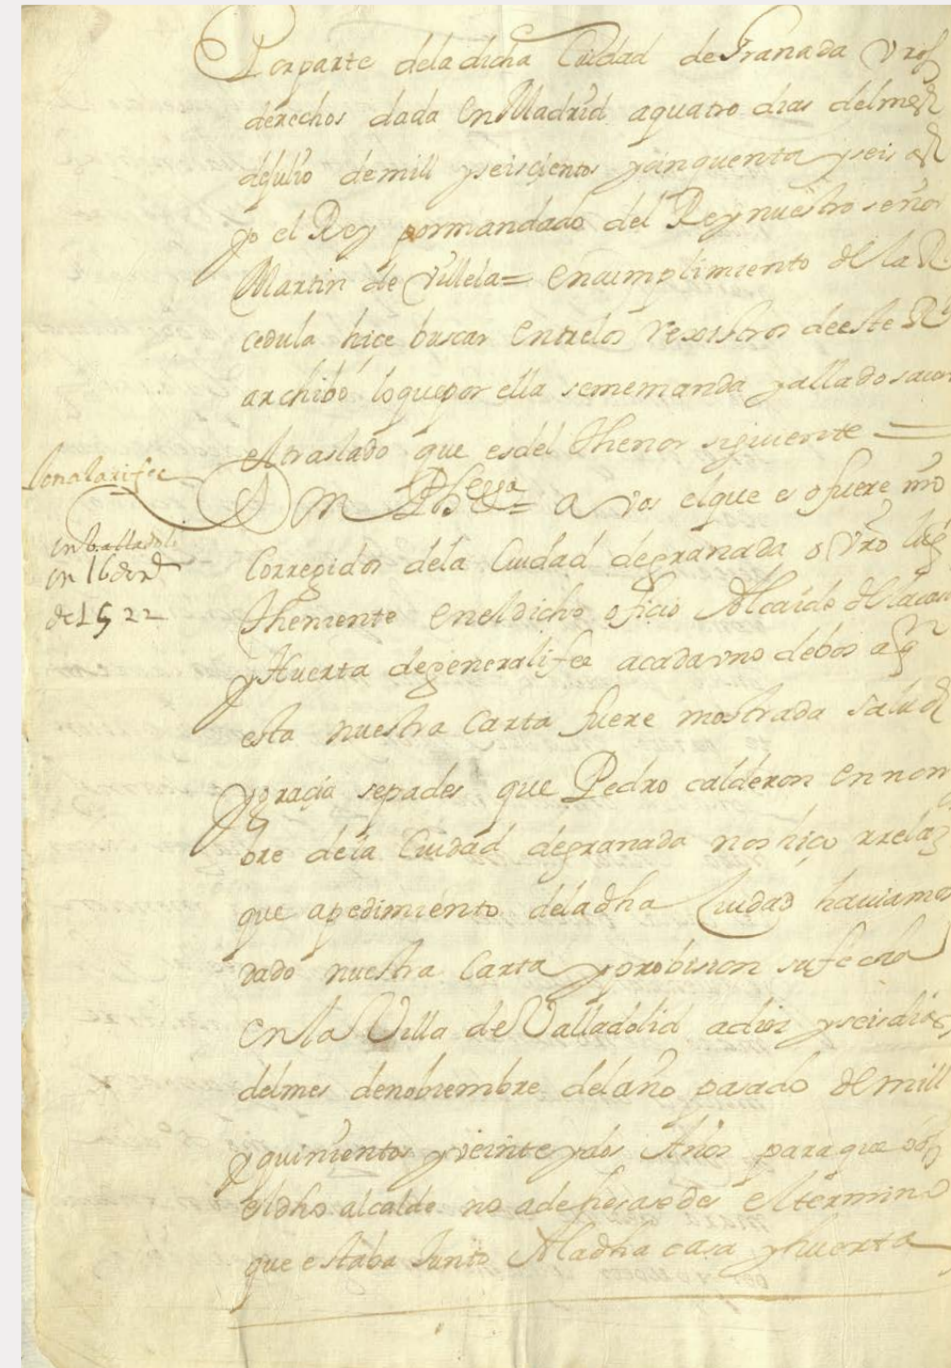 Por parte dela dicha Ciudad de Granada vros
derechos dada en Madrid a quatro dias del mes
de Julio de mill y seiscientos y cinquenta y seis as
yo el Rey por mandado del Rey nuestro señor
Martin de Villela = en cumplimiento de la Rl
cedula hice buscar entre los rexistros de este Rl
archibo lo que por ella se me manda y allado sacar
el traslado que es del thenor siguiente =
Con alarifee
Don = a vos el que es o fuere nro
en Valladolid
Corregidor dela Ciudad de granada o vro lug
en 16 de
theniente en el dicho oficio Alcaide de la casa
de 1522
y Huerta de generalifee a cada vno de bos a q
esta nuestra Carta fuere mostrada salud
y gracia sepades que Pedro calderon en nom
bre de la Ciudad de granada nos hiço rrelaz
que a pedimiento dela dha Ciudad hauiamos
dado nuestra Carta y probision su fecha
en la Villa de Valladolid a diez y seis dias
del mes de nobiembre del año pasado de mill
y quinientos y veinte y dos Años para que vos
el dho alcalde no adehesasedes el termino
que estaba Junto A la dha casa y huerta